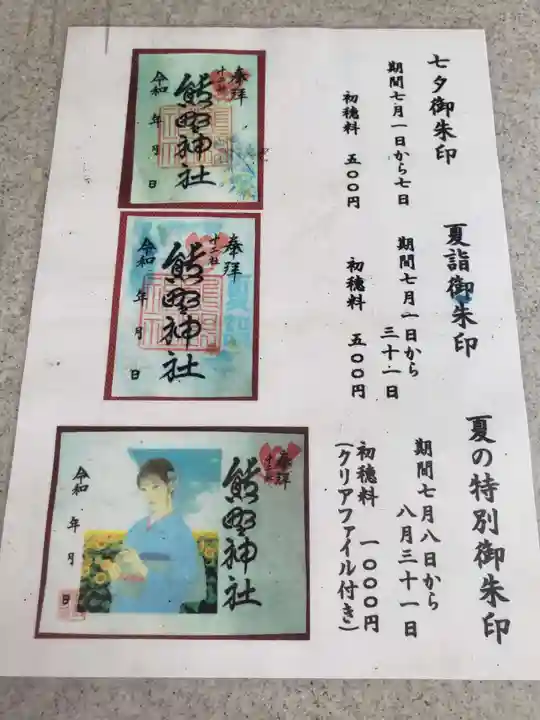 七夕御朱印
期間七月一日から七日
初穂料 五〇〇円
奉拝
十二社
熊野神社
令和 年 月 日
夏詣御朱印
期間七月一日から
三十一日
初穂料 五〇〇円
奉拝
十二社
熊野神社
令和 年 月 日
夏の特別御朱印
期間七月八日から
八月三十一日
初穂料 一〇〇〇円
(クリアファイル付き)
奉拝
十二社
熊野神社
令和 年 月 日